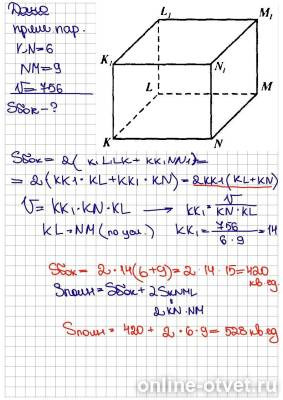 Дано
прям. пар.
KN=6
NM=9
V=756
Sбок-?
L₁ M₁
K₁ N₁
L M
K N
Sбок= 2(K₁L₁LK+KK₁NN₁)=
=2(KK₁·KL+KK₁·KN)=2KK₁(KL+KN)
V=KK₁·KN·KL → KK₁= V/KN·KL
KL=NM(по усл.) KK₁= 756/6·9 =14
Sбок= 2·14(6+9)=2·14·15=420 кв.ед.
Sполн=Sбок+2SKNML
2KN·NM
Sполн= 420+2·6·9=528 кв.ед.
online-otvet.ru